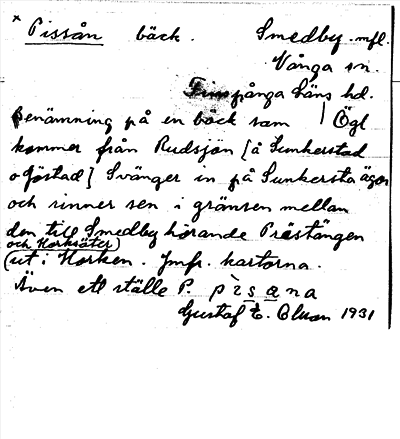 x Pissån bäck. Smedby. mfl.
Vånga sn.
Finspånga läns hd.
Benämning på en bäck som | Ögl
kommer från Rudsjön [å Sunkerstad
o Jöstad] Svänger in på Sunkersta ägor
och rinner sen i gränsen mellan
den till Smedby hörande Prästängen
och Horksäter)
(ut i Horken. Jmfr. kartorna.
Även ett ställe P. pìsana
Gustaf E. 1931